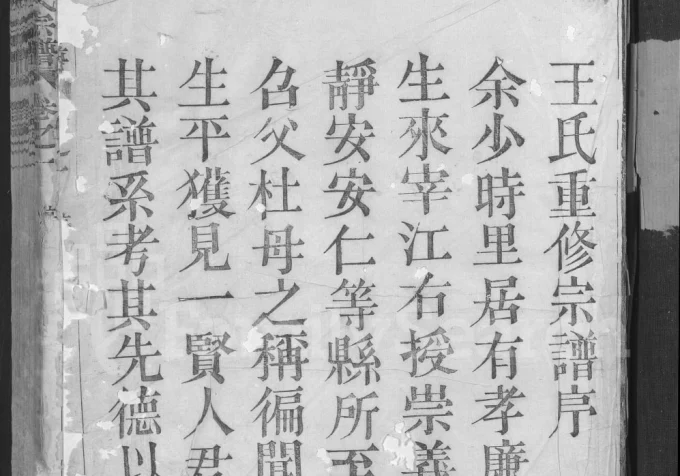 王氏重修宗譜序
余少時里居有孝廉
生來宰江右授崇義
靜安安仁等縣所至
召父杜母之稱徧聞
生平獲見一賢人君
其譜系考其先德以